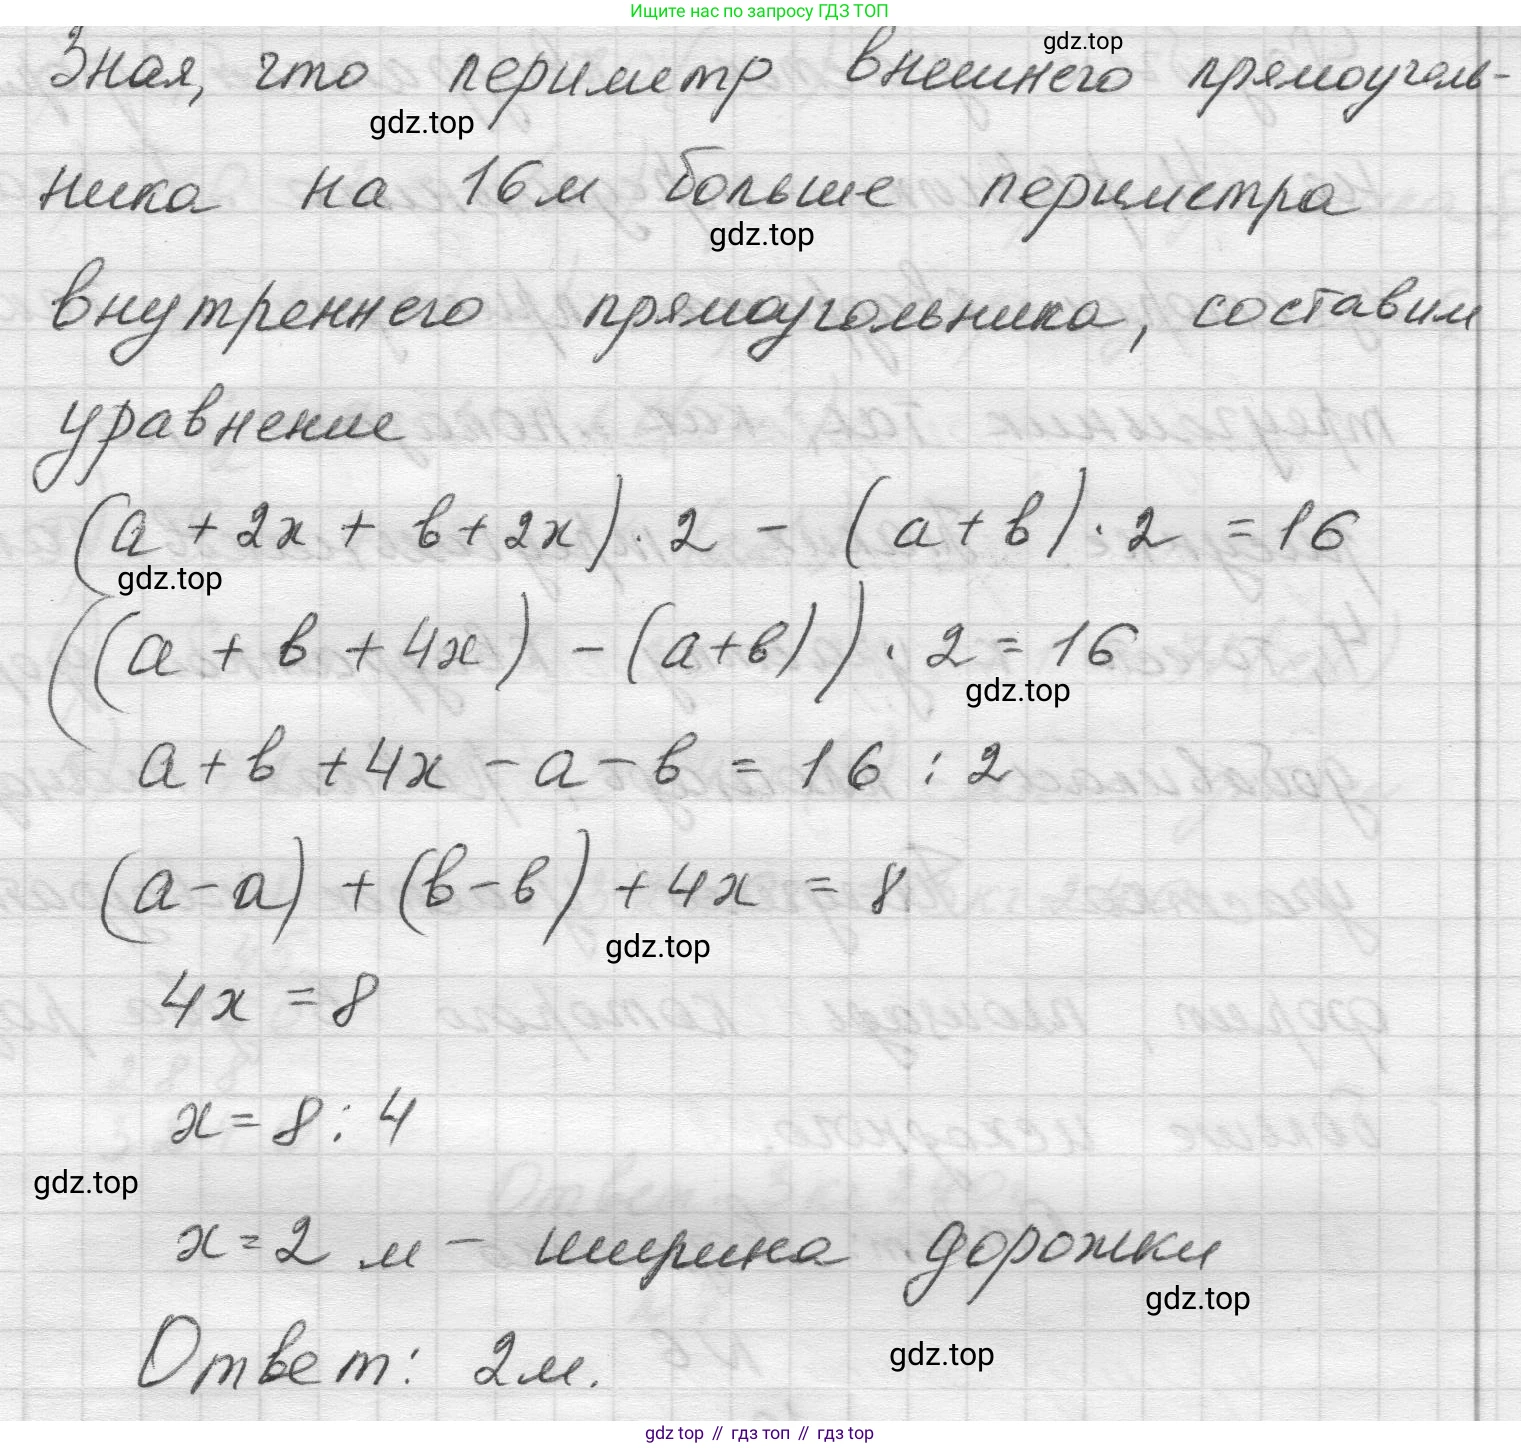 Ищите нас по запросу ГДЗ ТОП
Зная, что периметр внешнего прямоуголь-
gdz.top
gdz.top
ника на 16м больше периметра
gdz.top
внутреннего прямоугольника, составим
уравнение
(а + 2х + в + 2х) · 2 - (а + в) · 2 = 16
gdz.top
((а + в + 4х) - (а + в)) · 2 = 16
gdz.top
а + в + 4х - а - в = 16 : 2
(а - а) + (в - в) + 4х = 8
gdz.top
4х = 8
х = 8 : 4
gdz.top
х = 2 м - ширина дорожки
gdz.top
Ответ: 2м.
gdz.top
gdz top // гдз топ // гдз top